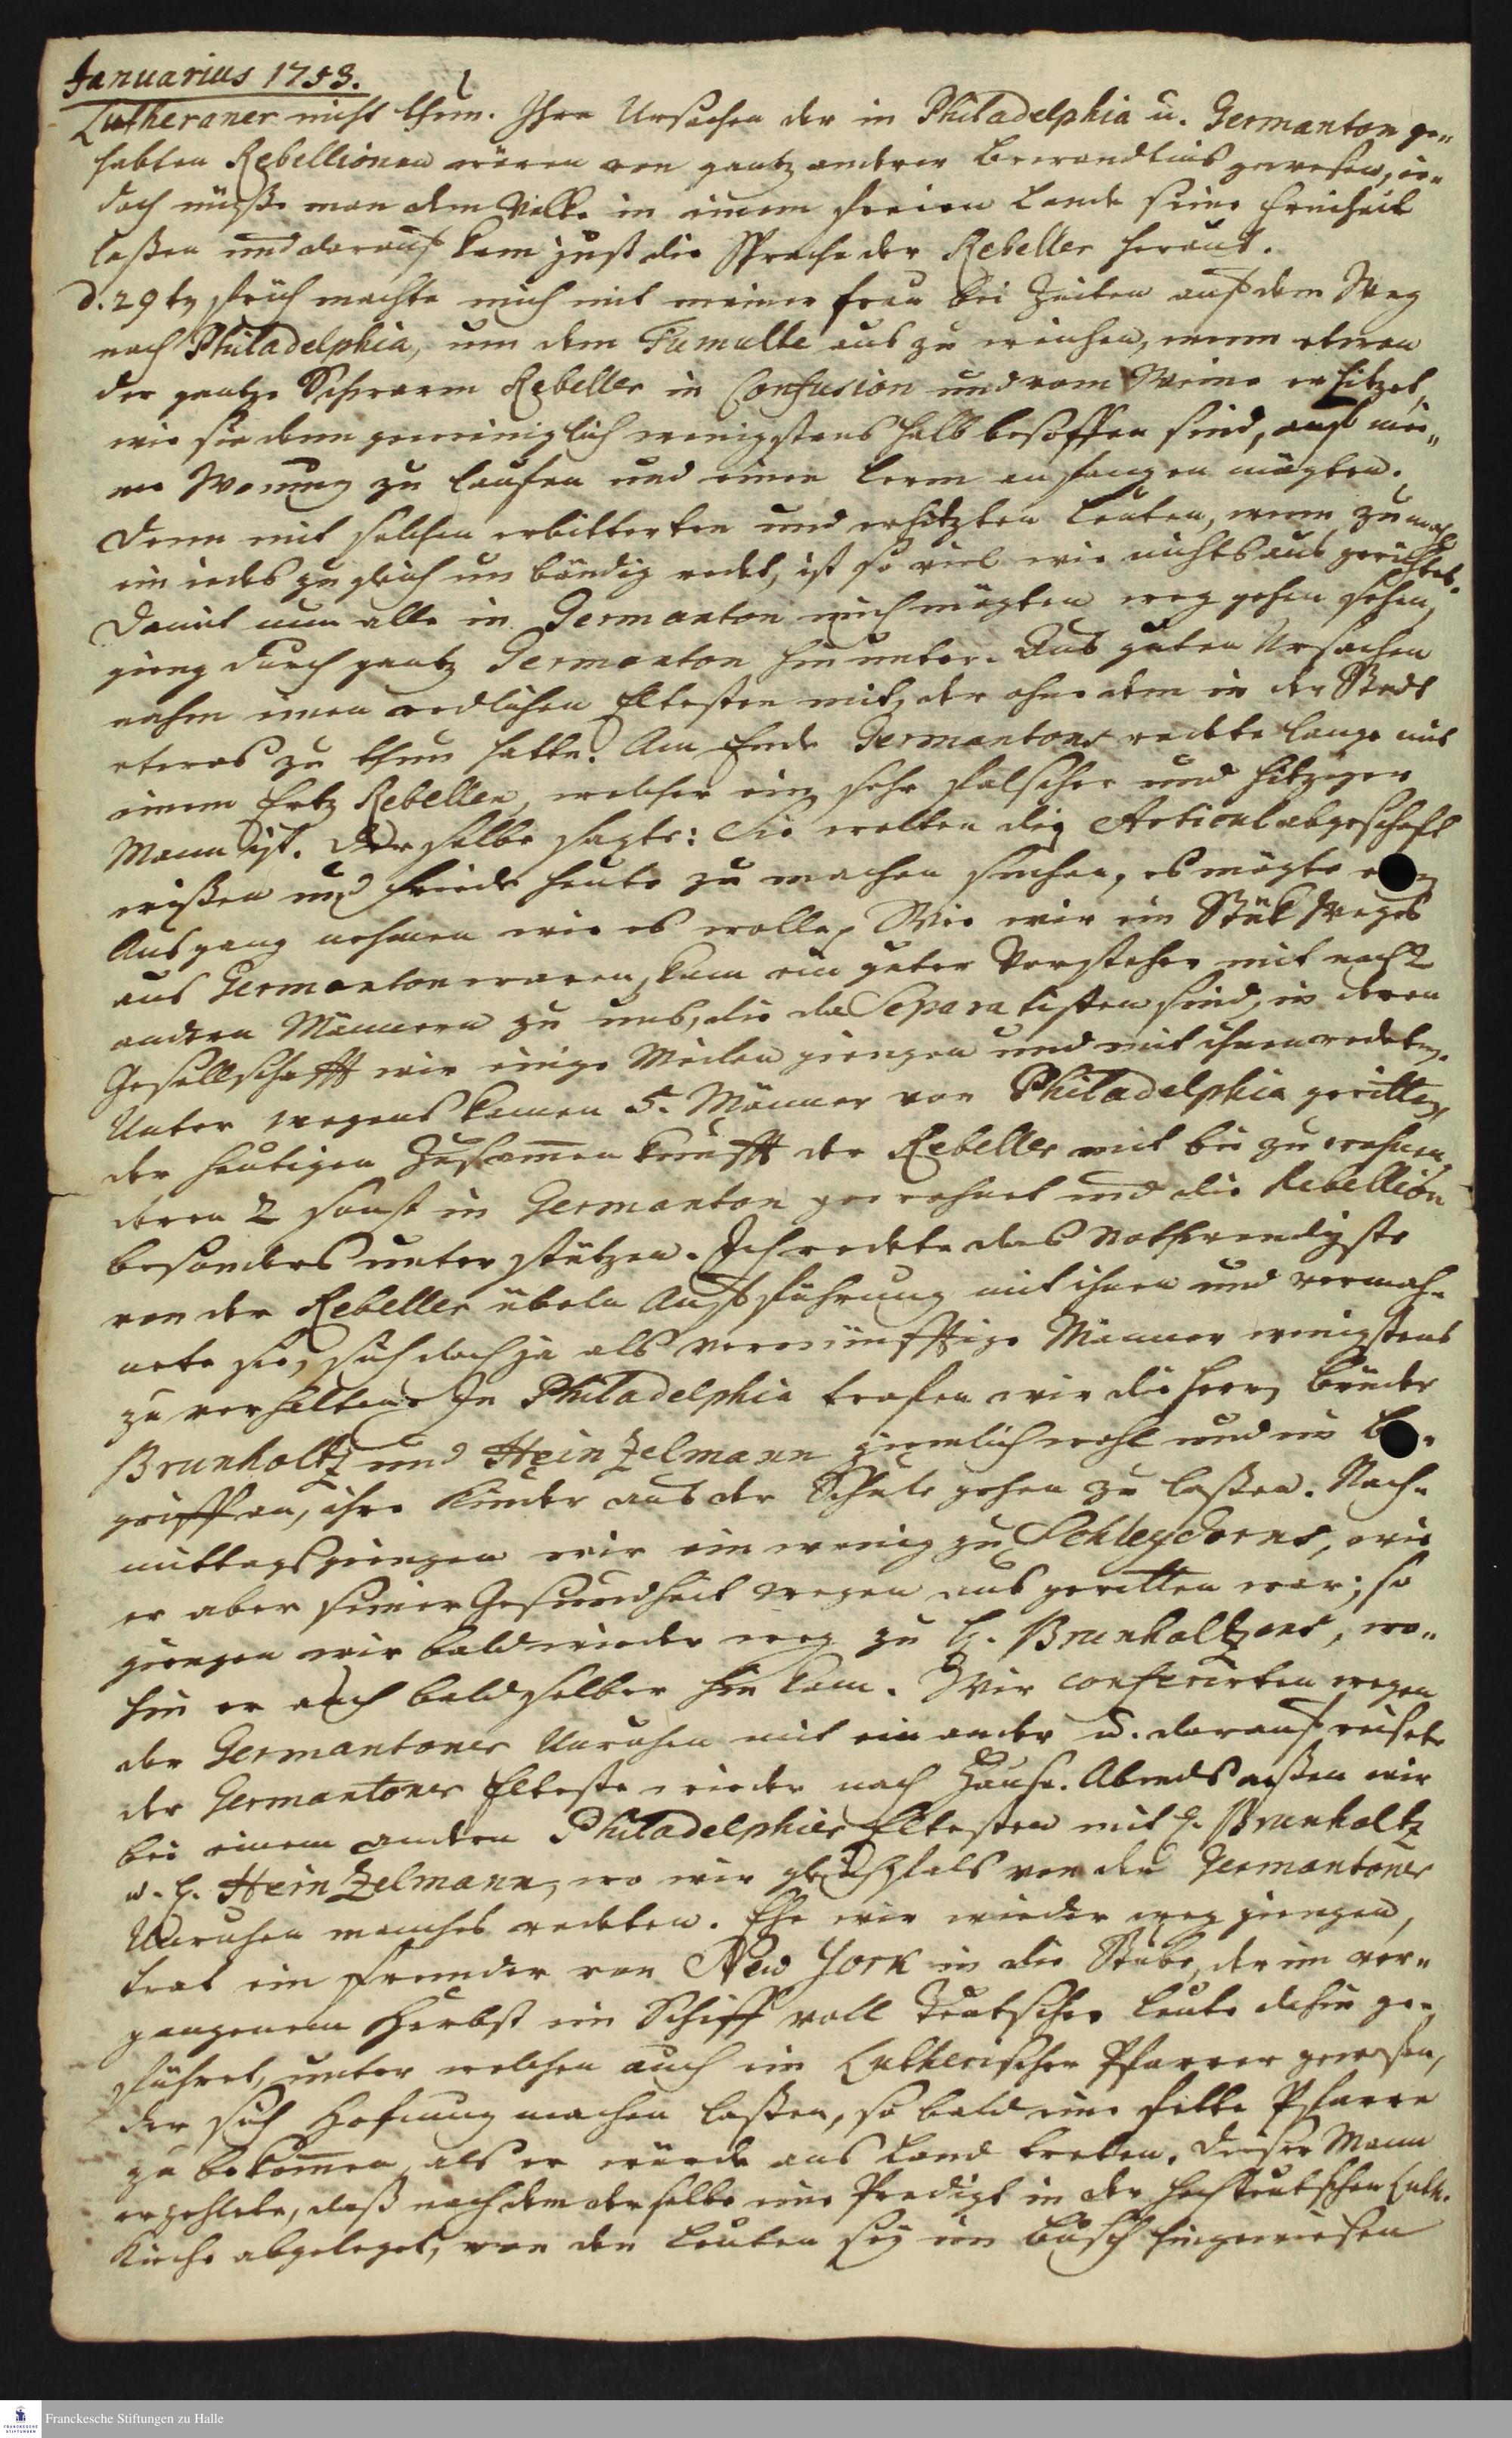 Januarius 1753.
Lutheraner nicht thun. Ihre Ursachen der in Philadelphia u. Germanton ge„
habten Rebellionen wären von gantz andrer Bewandtnis gewesen, ie„
doch müße man dem Volke in einem freien Lande seine Freiheit
laßen und daraus kam just die Sprache der Rebeller heraus.
d. 29ten früh machte mich mit meiner Frau bei Zeiten auf dem Weg
nach Philadelphia, um dem Tumulte aus zu weichen, wenn etwan
der gantze Schwarm Rebeller in Confusion und vom Weine erhitzet,
wie sie denn gemeiniglich wenigstens halb besoffen sind, auf mei„
ne Wonung zu laufen und einen Lerm anfangen mögten.
Denn mit solchen erbitterten und erhitzten Leuten, wenn zumahl
ein iedes zugleich unbändig redet, ist so viel wie nichts aus gerichtet.
Damit nun alle in Germanton mich mögten weg gehen sehen,
gieng durch gantz Germanton hinunter. Aus guten Ursachen
nahm einen redlichen Eltesten mit, der ohne dem in der Stadt
etwas zu thun hatte. Am Ende Germantons redete lange mit
einem Ertz Rebellen, welcher ein sehr falscher und hitziger
Mann ist. Derselbe sagte: Sie wolten die Articul abgeschaft
wißen und Friede heute zu machen suchen, es mögte
Ausgang nehmen wie es wolle. Wie wir ein Stük Weges
aus Germanton waren, kam ein guter Vorsteher mit noch 2
andern Männern zu uns, die da Separatisten sind, in deren
Gesellschafft wir einige Meilen giengen und mit ihnen redeten.
Unter wegens kamen 5. Männer von Philadelphia geritten,
der heutigen Zusam̅en kunfft der Rebeller mit bei zu wohnen,
deren 2 sonst in Germanton gewohnet und die Rebellion
besonders unterstützen. Ich redete das Nothwendigste
von der Rebeller übeln Aufführung mit ihnen und vermah„
nete sie, sich doch ja als vernünfftige Männer wenigstens
zu verhalten. In Philadelphia trafen wir die Herrn Brüder
Brunholtz und Heinzelmann ziemlich wohl und im Be„
griff an, ihre Kinder aus der Schule gehen zu laßen. Nach„
mittags giengen wir ein wenig zu Schleydorns, wie
er aber seiner Gesundheit wegen aus geritten war; so
giengen wir bald wieder weg zu H. Brunholtzens, wo„
hin er auch bald selber hin kam. Wir conferirten wegen
der Germantoner Unruhen mit ein ander u. darauf reisete
der Germantoner Elteste wieder nach Hause. Abends aßen wir
bei einem andern Philadelphier Eltesten mit H. Brunholtz
u. H. Heinzelmann, wo wir gleichfals von den Germantoner
Unruhen manches redeten. Ehe wir wieder weg giengen,
trat ein Fremder von New York in die Stube, der im ver„
gangenen Herbst ein Schiff voll Teutscher Leute dahin ge„
führet, unter welchen auch ein Lutherischer Pfarrer gewesen,
der sich Hofnung machen laßen, so bald eine fette Pfarre
zu bekom̅en, als er würde ans Land treten. Dieser Mann
erzehlete, daß nach dem derselbe eine Predigt in der hochteutschen Luth.
Kirche abgeleget, von den Leuten sey im Busch hingewiesen
Franckesche Stiftungen zu Halle